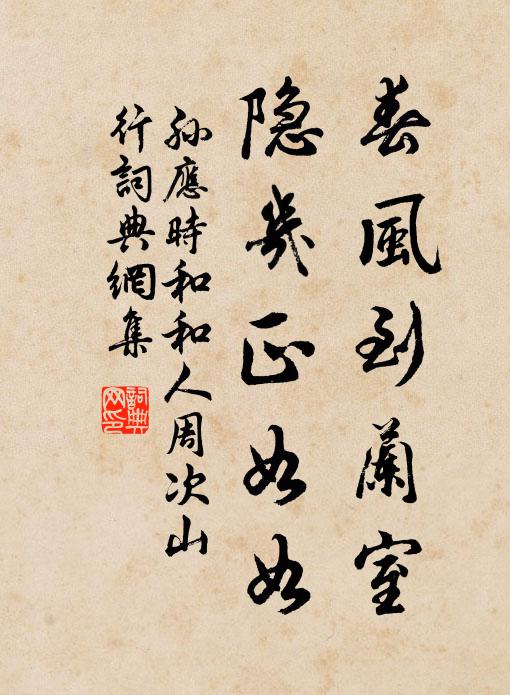 春風到蘭室
隐幾正如如
孫應時和和人周次山
行詞典網集
詞典網印